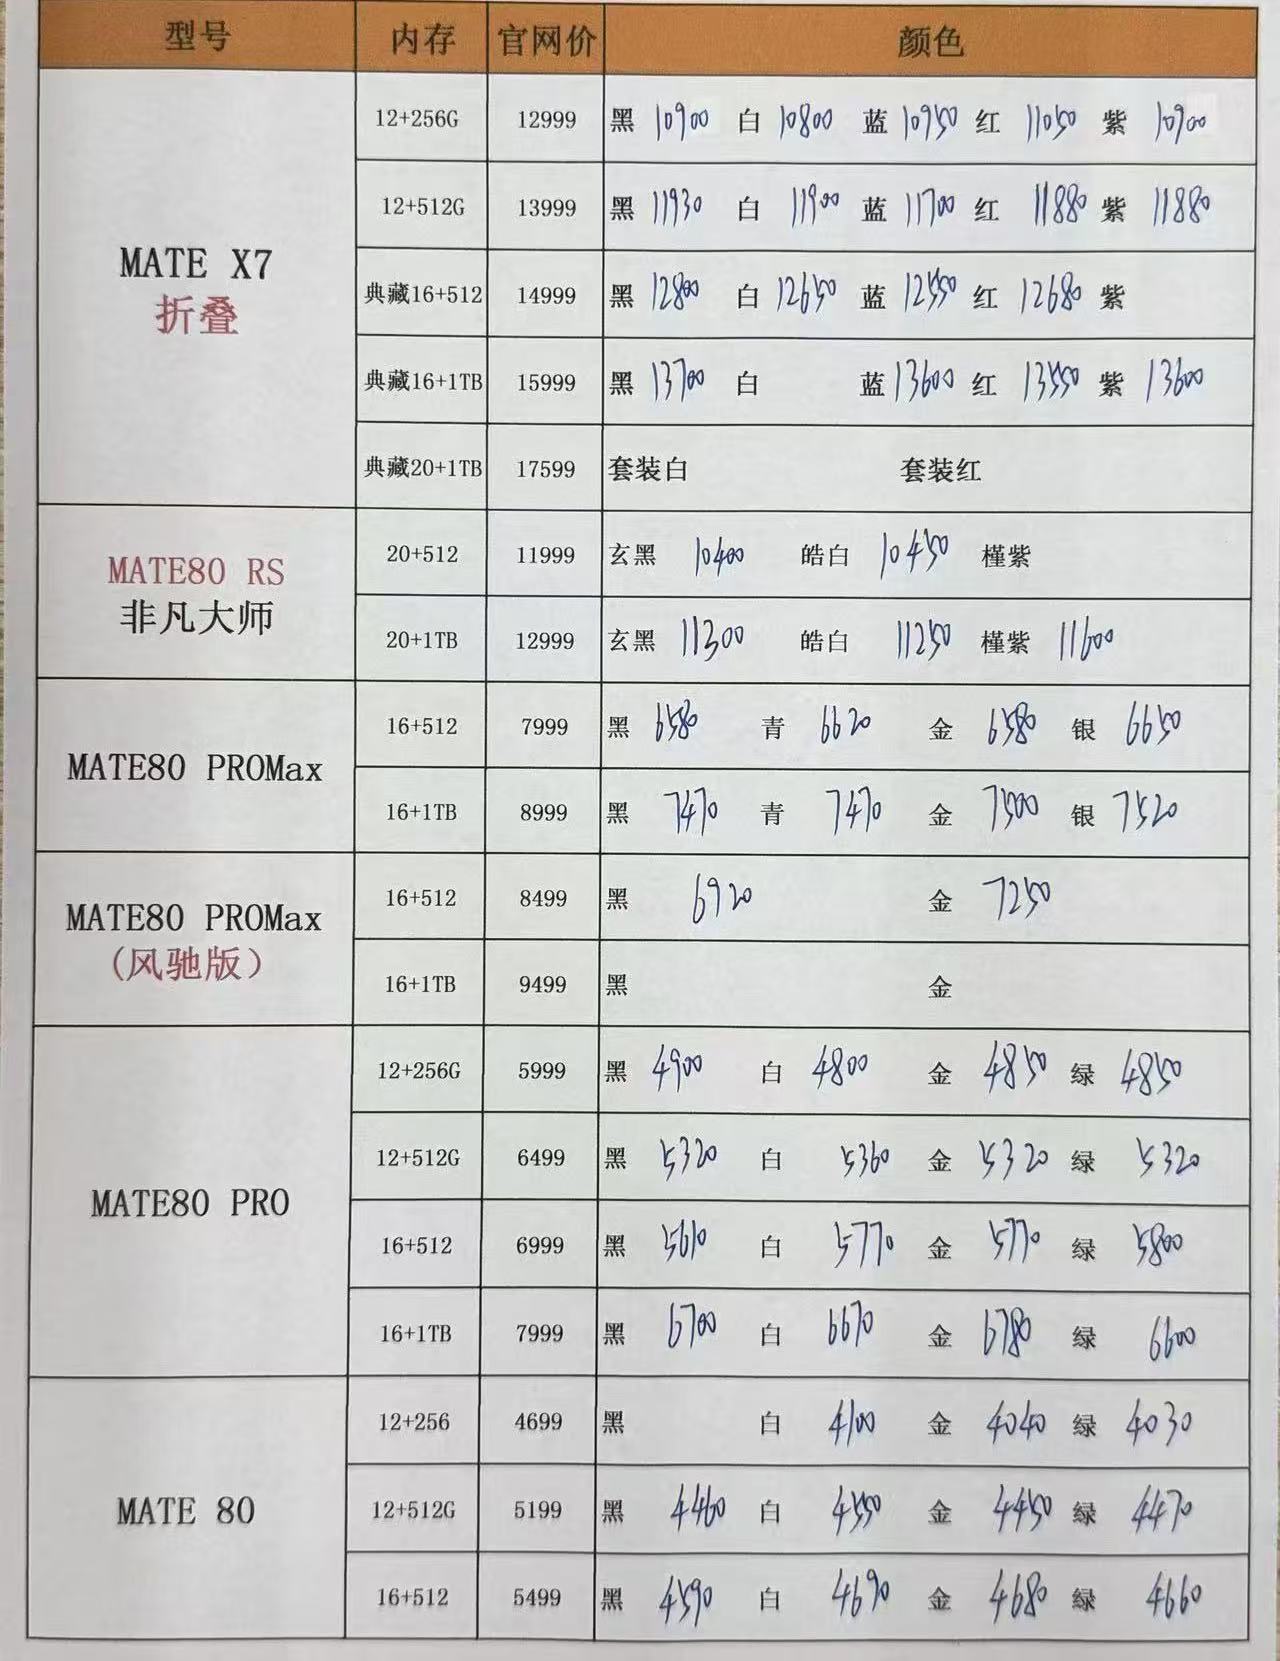 型号 内存 官网价 颜色
12+256G 12999 黑 10900 白 10800 蓝 10950 红 11050 紫 10900
12+512G 13999 黑 11930 白 11900 蓝 11700 红 11880 紫 11880
MATE X7
折叠
典藏16+512 14999 黑 12800 白 12650 蓝 12550 红 12680 紫
典藏16+1TB 15999 黑 13700 白 蓝 13600 红 13550 紫 13600
典藏20+1TB 17599 套装白 套装红
MATE80 RS
非凡大师
20+512 11999 玄黑 10400 皓白 10450 槿紫
20+1TB 12999 玄黑 11300 皓白 11250 槿紫 11600
MATE80 PROMax
16+512 7999 黑 6580 青 6620 金 6580 银 6650
16+1TB 8999 黑 7470 青 7470 金 7500 银 7520
MATE80 PROMax
(风驰版)
16+512 8499 黑 6920 金 7250
16+1TB 9499 黑 金
MATE80 PRO
12+256G 5999 黑 4900 白 4800 金 4850 绿 4850
12+512G 6499 黑 5320 白 5360 金 5320 绿 5320
16+512 6999 黑 5610 白 5770 金 5770 绿 5800
16+1TB 7999 黑 6700 白 6670 金 6780 绿 6600
MATE 80
12+256 4699 黑 白 4100 金 4040 绿 4030
12+512G 5199 黑 4460 白 4550 金 4450 绿 4470
16+512 5499 黑 4590 白 4690 金 4680 绿 4660